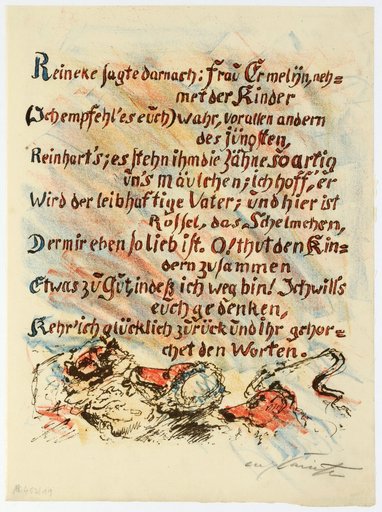 Reineke sagte darnach: Frau Ermelÿn, neh=
met der Kinder
(Ich empfehl'es euch) wahr, vor allen andern
des jüngsten,
Reinhart's; es stehn ihm die Zähne so artig
um's Mäulchen; ich hoff', er
Wird der leibhaftige Vater; und hier ist
Rossel, das Schelmchen,
Der mir eben so lieb ist. O! thut den Kin=
dern zusammen
Etwas zu Gut, indeß ich weg bin! Ich will's
euch gedenken,
Kehr' ich glücklich zurück und Ihr gehor=
chet den Worten.